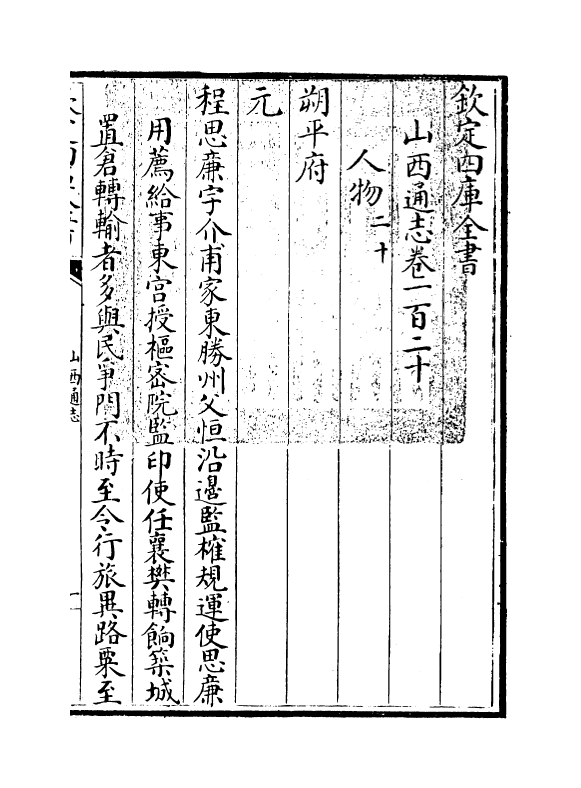 欽定四庫全書
山西通志卷一百二十
人物二十
朔平府
元
程思廉字介甫家東勝州父恒沿邊監榷規運使思廉
用薦給事東宫授樞密院監印使任襄樊轉餉築城
置倉轉輸者多與民爭門不時至令行旅異路粟至
山西通志
一